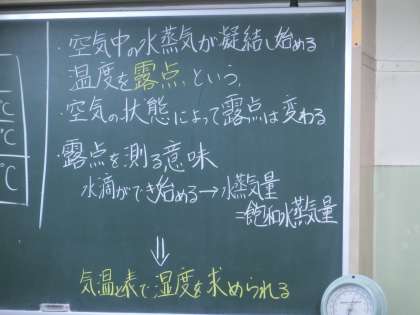 ・空気中の水蒸気が凝結し始める
温度を露点という。
・空気の状態によって露点は変わる
・露点を測る意味
水滴ができ始める→水蒸気量
=飽和水蒸気量
⇓
気温と表で湿度を求められる
℃
℃
℃